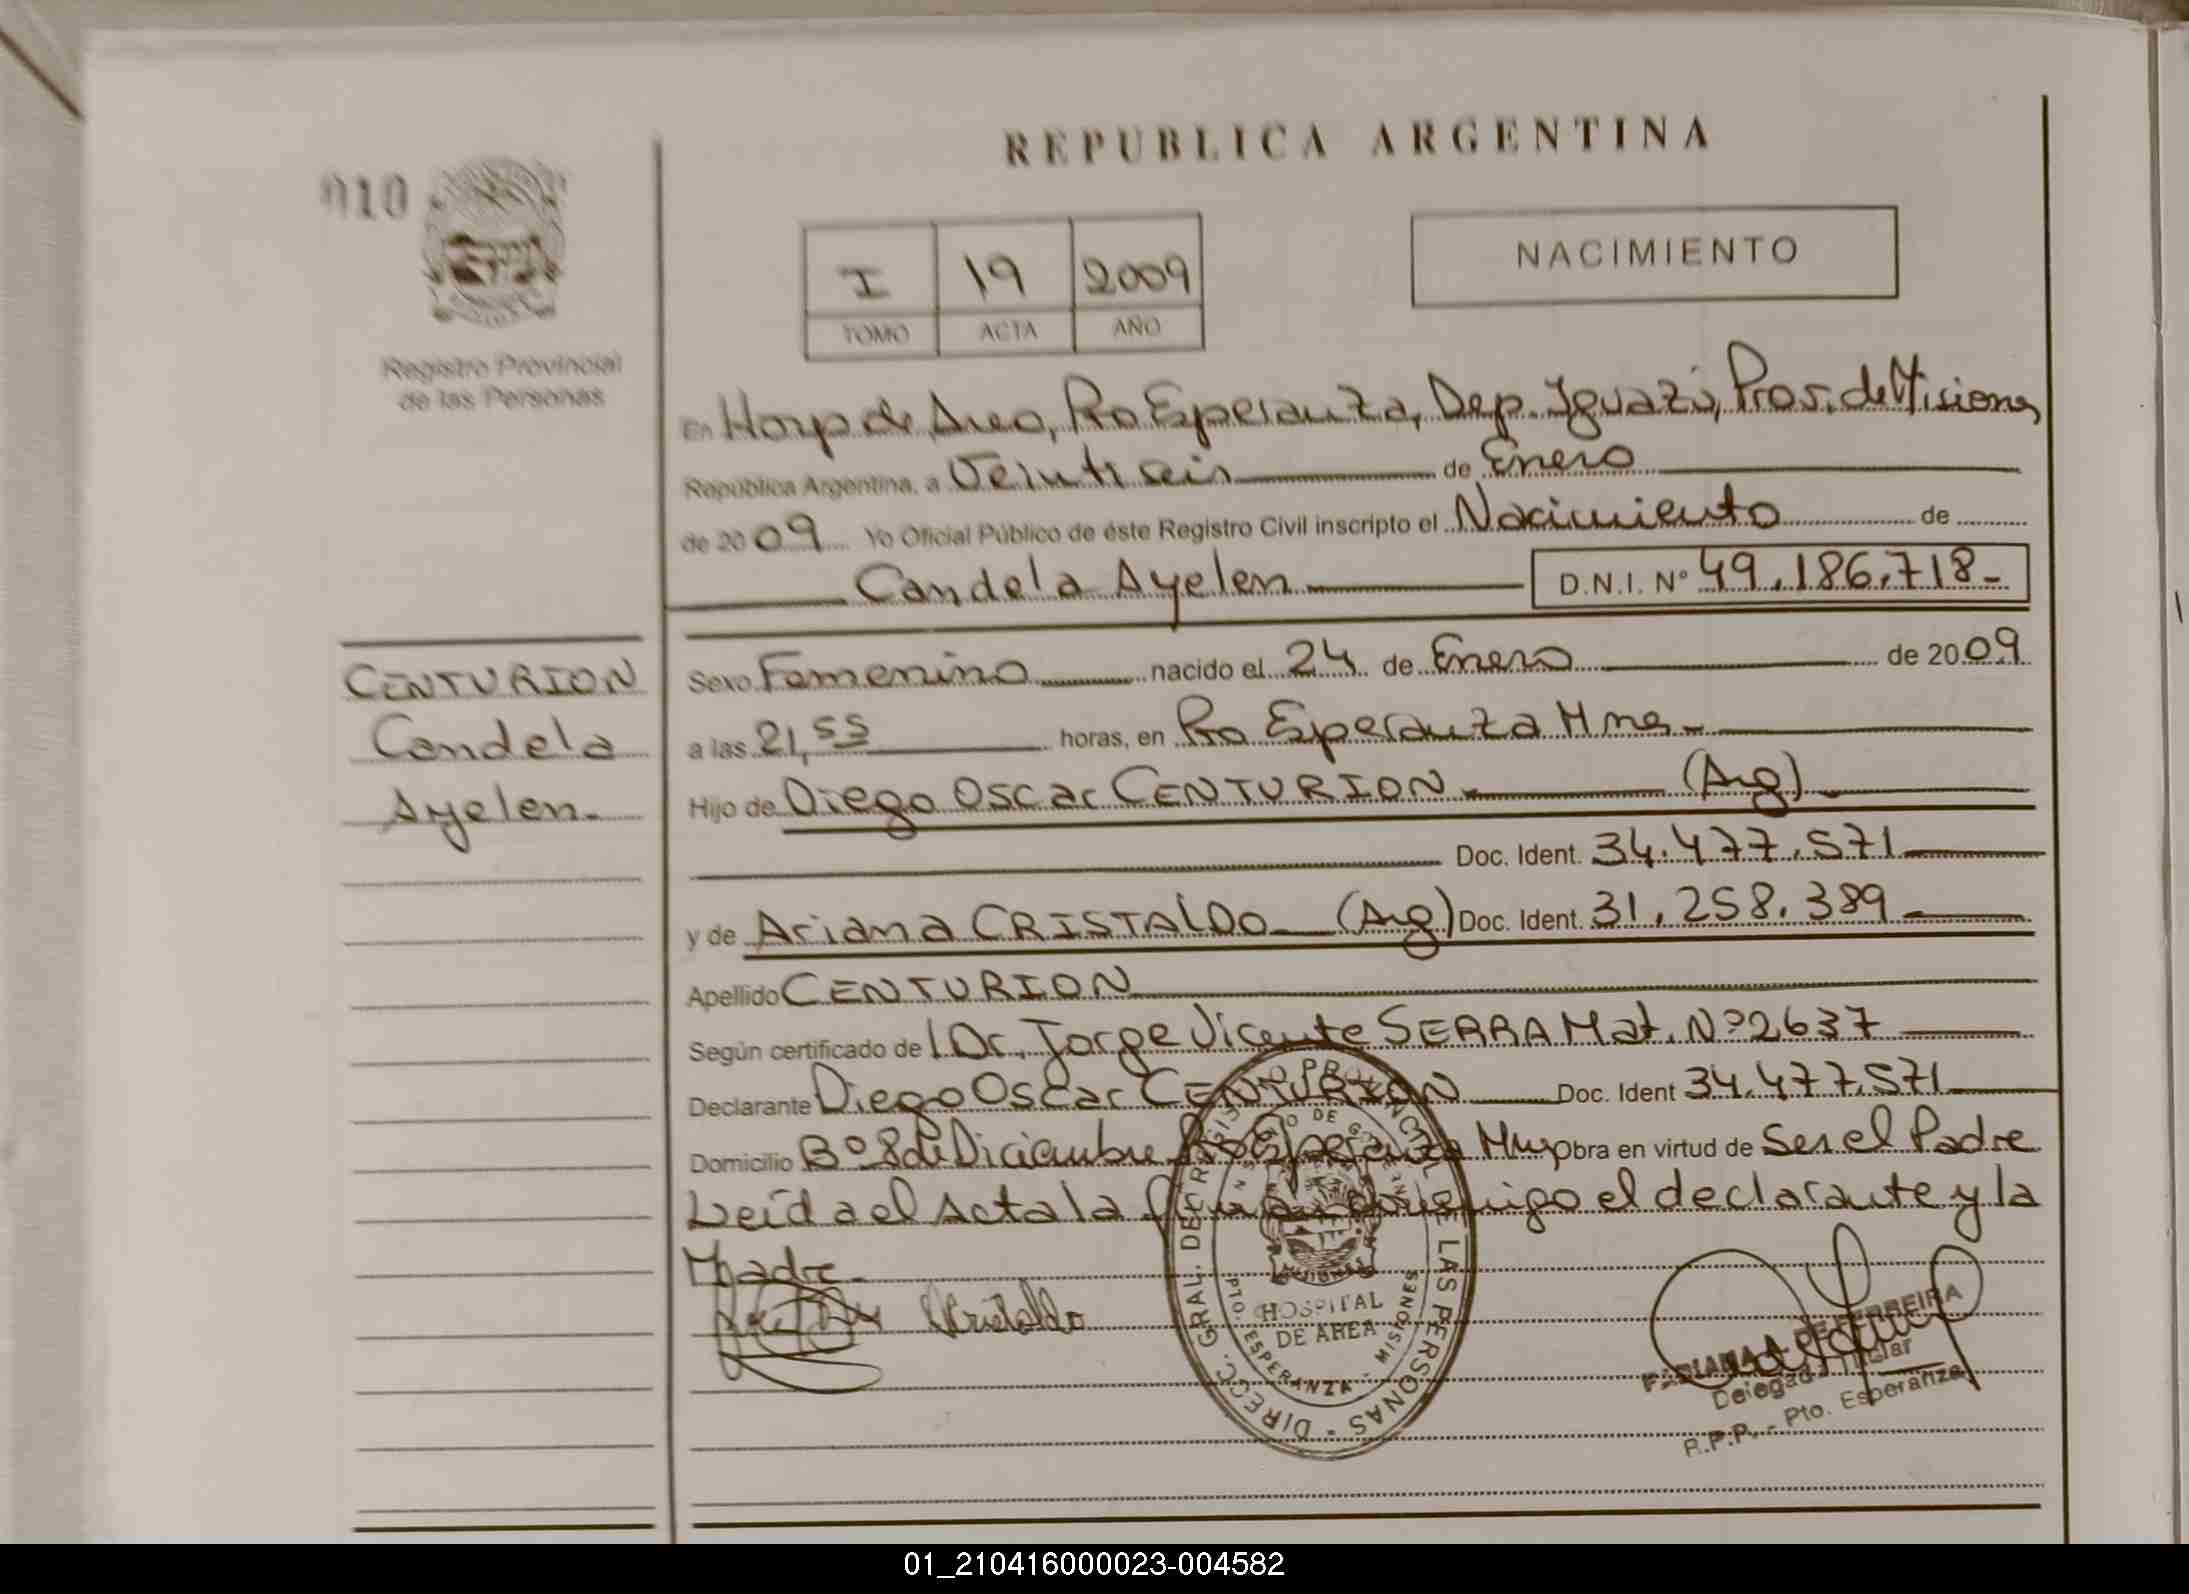 REPUBLICA ARGENTINA
010
NACIMIENTO
I 19 2009
TOMO ACTA AÑO
Registro Provincial
de las Personas
En Hosp de Area, Pto Esperanza, Dep. Iguazú, Prov. de Misiones
República Argentina, a Veintiseis de Enero
de 2009 Yo Oficial Público de éste Registro Civil inscripto el Nacimiento de
Candela Ayelen D.N.I. Nº 49.186.718-
CENTURION
Candela
Ayelen.
Sexo Femenino nacido el 24 de Enero de 2009
a las 21,55 horas, en Pto Esperanza Mnes.
Hijo de Diego Oscar CENTURION (Arg)
Doc. Ident. 34.477.571
y de Ariana CRISTALDO (Arg) Doc. Ident. 31.258.389
Apellido CENTURION
Según certificado del Dr. Jorge Vicente SERRA Mat. Nº 2637
Declarante Diego Oscar CENTURION Doc. Ident 34.477.571
Domicilio Bº 8 de Diciembre Pto Esperanza obra en virtud de Ser el Padre
Leída el Acta la firman conmigo el declarante y la
Madre.
Cristaldo
DIRECC. GRAL. DEL REGISTRO PROVINCIAL DE LAS PERSONAS
MINISTERIO DE GOBIERNO
HOSPITAL
DE AREA
PTO. ESPERANZA - MISIONES
FABIANA A. DE FERREIRA
Delegada Titular
R.P.P. - Pto. Esperanza
01_210416000023-004582